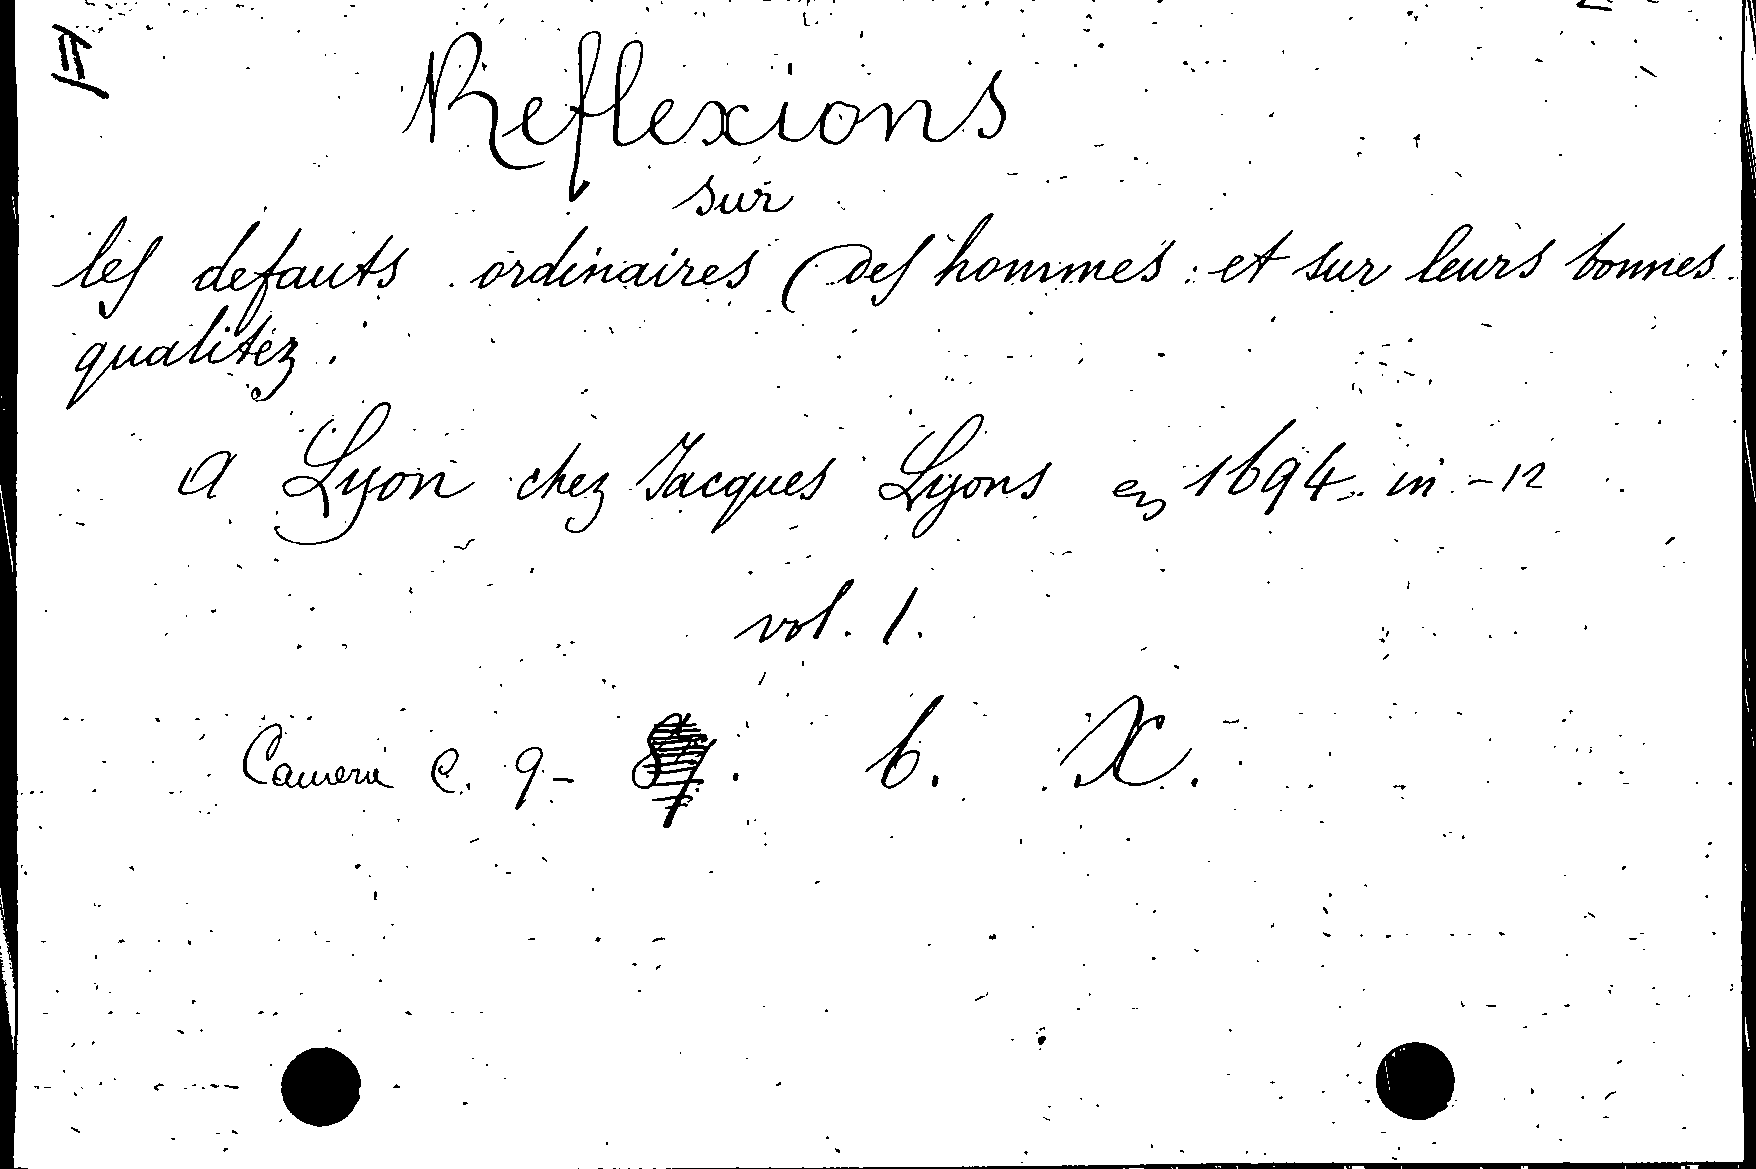 Reflexions
sur
les defauts ordinaires des hommes: et sur leurs bonnes
qualitéz.
A Lyon chez Jacques Lyons en 1694. in-12
vol. 1.
Camera C. 9- b. X.